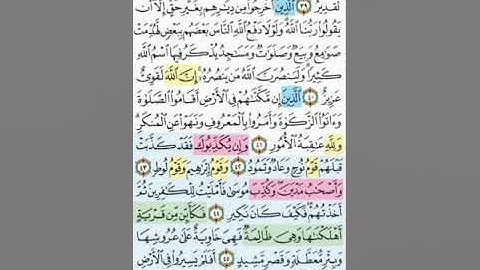 لَقَدِيرٌ ٣٩ ٱلَّذِينَ أُخْرِجُوا۟ مِن دِيَٰرِهِم بِغَيْرِ حَقٍّ إِلَّآ أَن
يَقُولُوا۟ رَبُّنَا ٱللَّهُ وَلَوْلَا دَفْعُ ٱللَّهِ ٱلنَّاسَ بَعْضَهُم بِبَعْضٍ لَّهُدِّمَتْ
صَوَٰمِعُ وَبِيَعٌ وَصَلَوَٰتٌ وَمَسَٰجِدُ يُذْكَرُ فِيهَا ٱسْمُ ٱللَّهِ
كَثِيرًا وَلَيَنصُرَنَّ ٱللَّهُ مَن يَنصُرُهُۥٓ إِنَّ ٱللَّهَ لَقَوِىٌّ
عَزِيزٌ ٤٠ ٱلَّذِينَ إِن مَّكَّنَّٰهُمْ فِى ٱلْأَرْضِ أَقَامُوا۟ ٱلصَّلَوٰةَ
وَءَاتَوُا۟ ٱلزَّكَوٰةَ وَأَمَرُوا۟ بِٱلْمَعْرُوفِ وَنَهَوْا۟ عَنِ ٱلْمُنكَرِ
وَلِلَّهِ عَٰقِبَةُ ٱلْأُمُورِ ٤١ وَإِن يُكَذِّبُوكَ فَقَدْ كَذَّبَتْ
قَبْلَهُمْ قَوْمُ نُوحٍ وَعَادٌ وَثَمُودُ ٤٢ وَقَوْمُ إِبْرَٰهِيمَ وَقَوْمُ لُوطٍ ٤٣
وَأَصْحَٰبُ مَدْيَنَ وَكُذِّبَ مُوسَىٰ فَأَمْلَيْتُ لِلْكَٰفِرِينَ ثُمَّ
أَخَذْتُهُمْ فَكَيْفَ كَانَ نَكِيرِ ٤٤ فَكَأَيِّن مِّن قَرْيَةٍ
أَهْلَكْنَٰهَا وَهِىَ ظَالِمَةٌ فَهِىَ خَاوِيَةٌ عَلَىٰ عُرُوشِهَا
وَبِئْرٍ مُّعَطَّلَةٍ وَقَصْرٍ مَّشِيدٍ ٤٥ أَفَلَمْ يَسِيرُوا۟ فِى ٱلْأَرْضِ